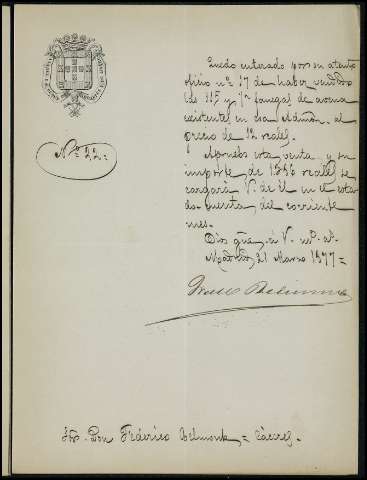 Quedo enterado por su atento
oficio nº 17 de haber vendido
las 115 y ½ fanegas de avena
existentes en esa Admon. al
precio de 12 reales.
Nº 22
Apruebo esta venta y su
importe de 1386 reales se
cargará V. de él en el esta
do-cuenta del corriente
mes.
Dios gue. á V. ms. as.
Madrid, 21 Marzo 1877=
Sr. Don Federico Belmonte = Cáceres.